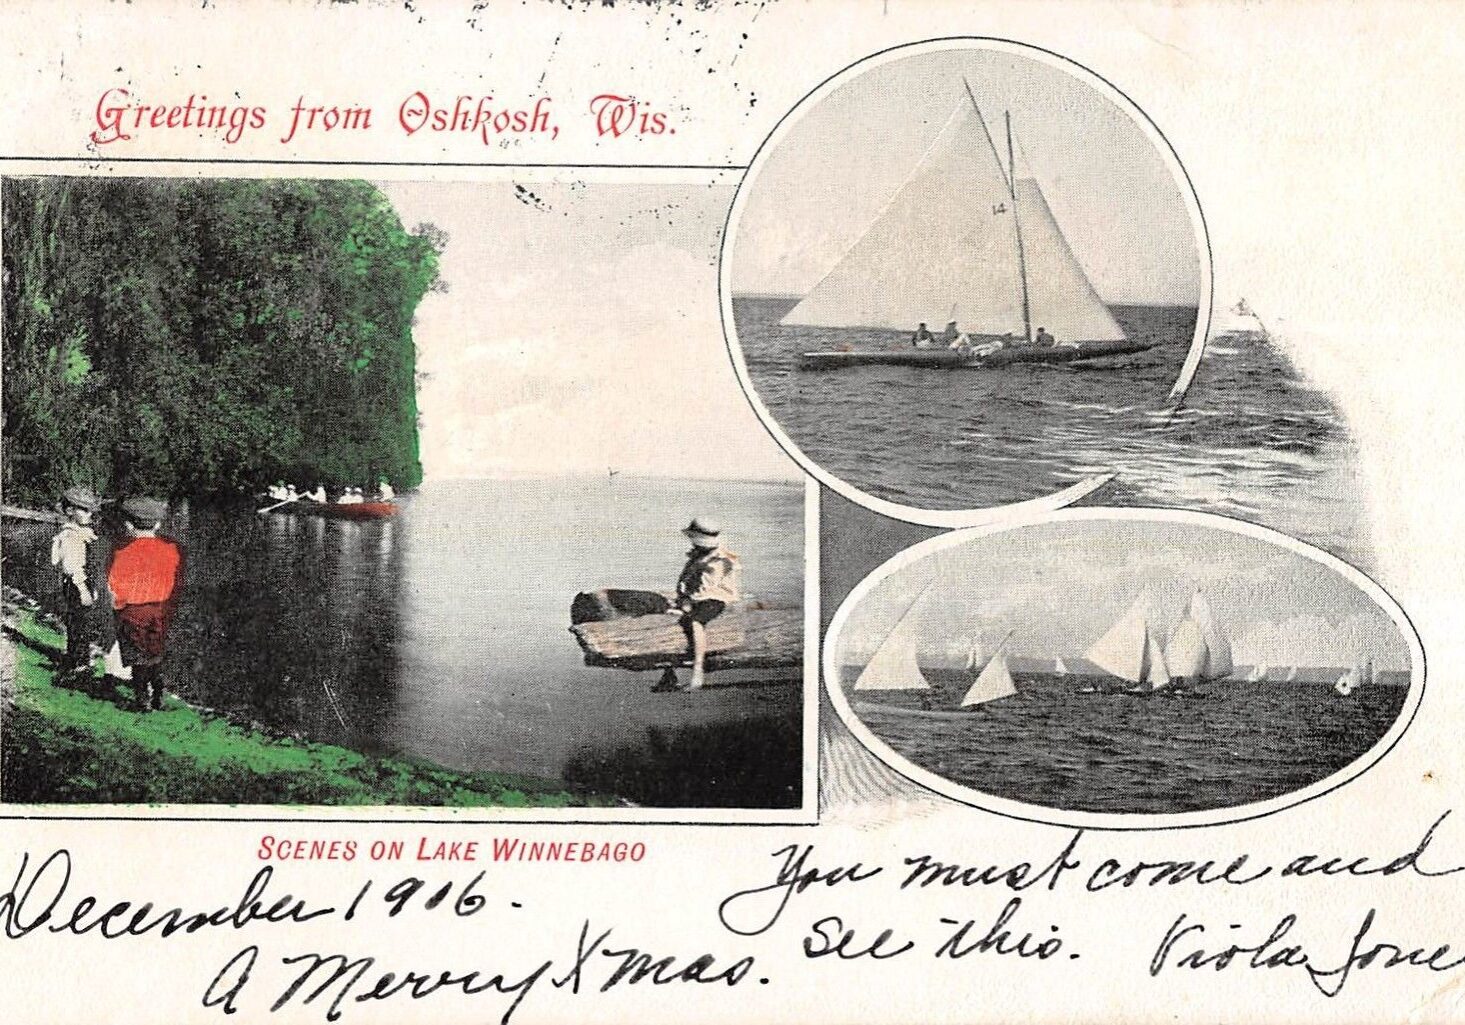 Greetings from Oshkosh, Wis.
14
SCENES ON LAKE WINNEBAGO
December 1906.
A Merry Xmas.
You must come and
see this. Viola Jone